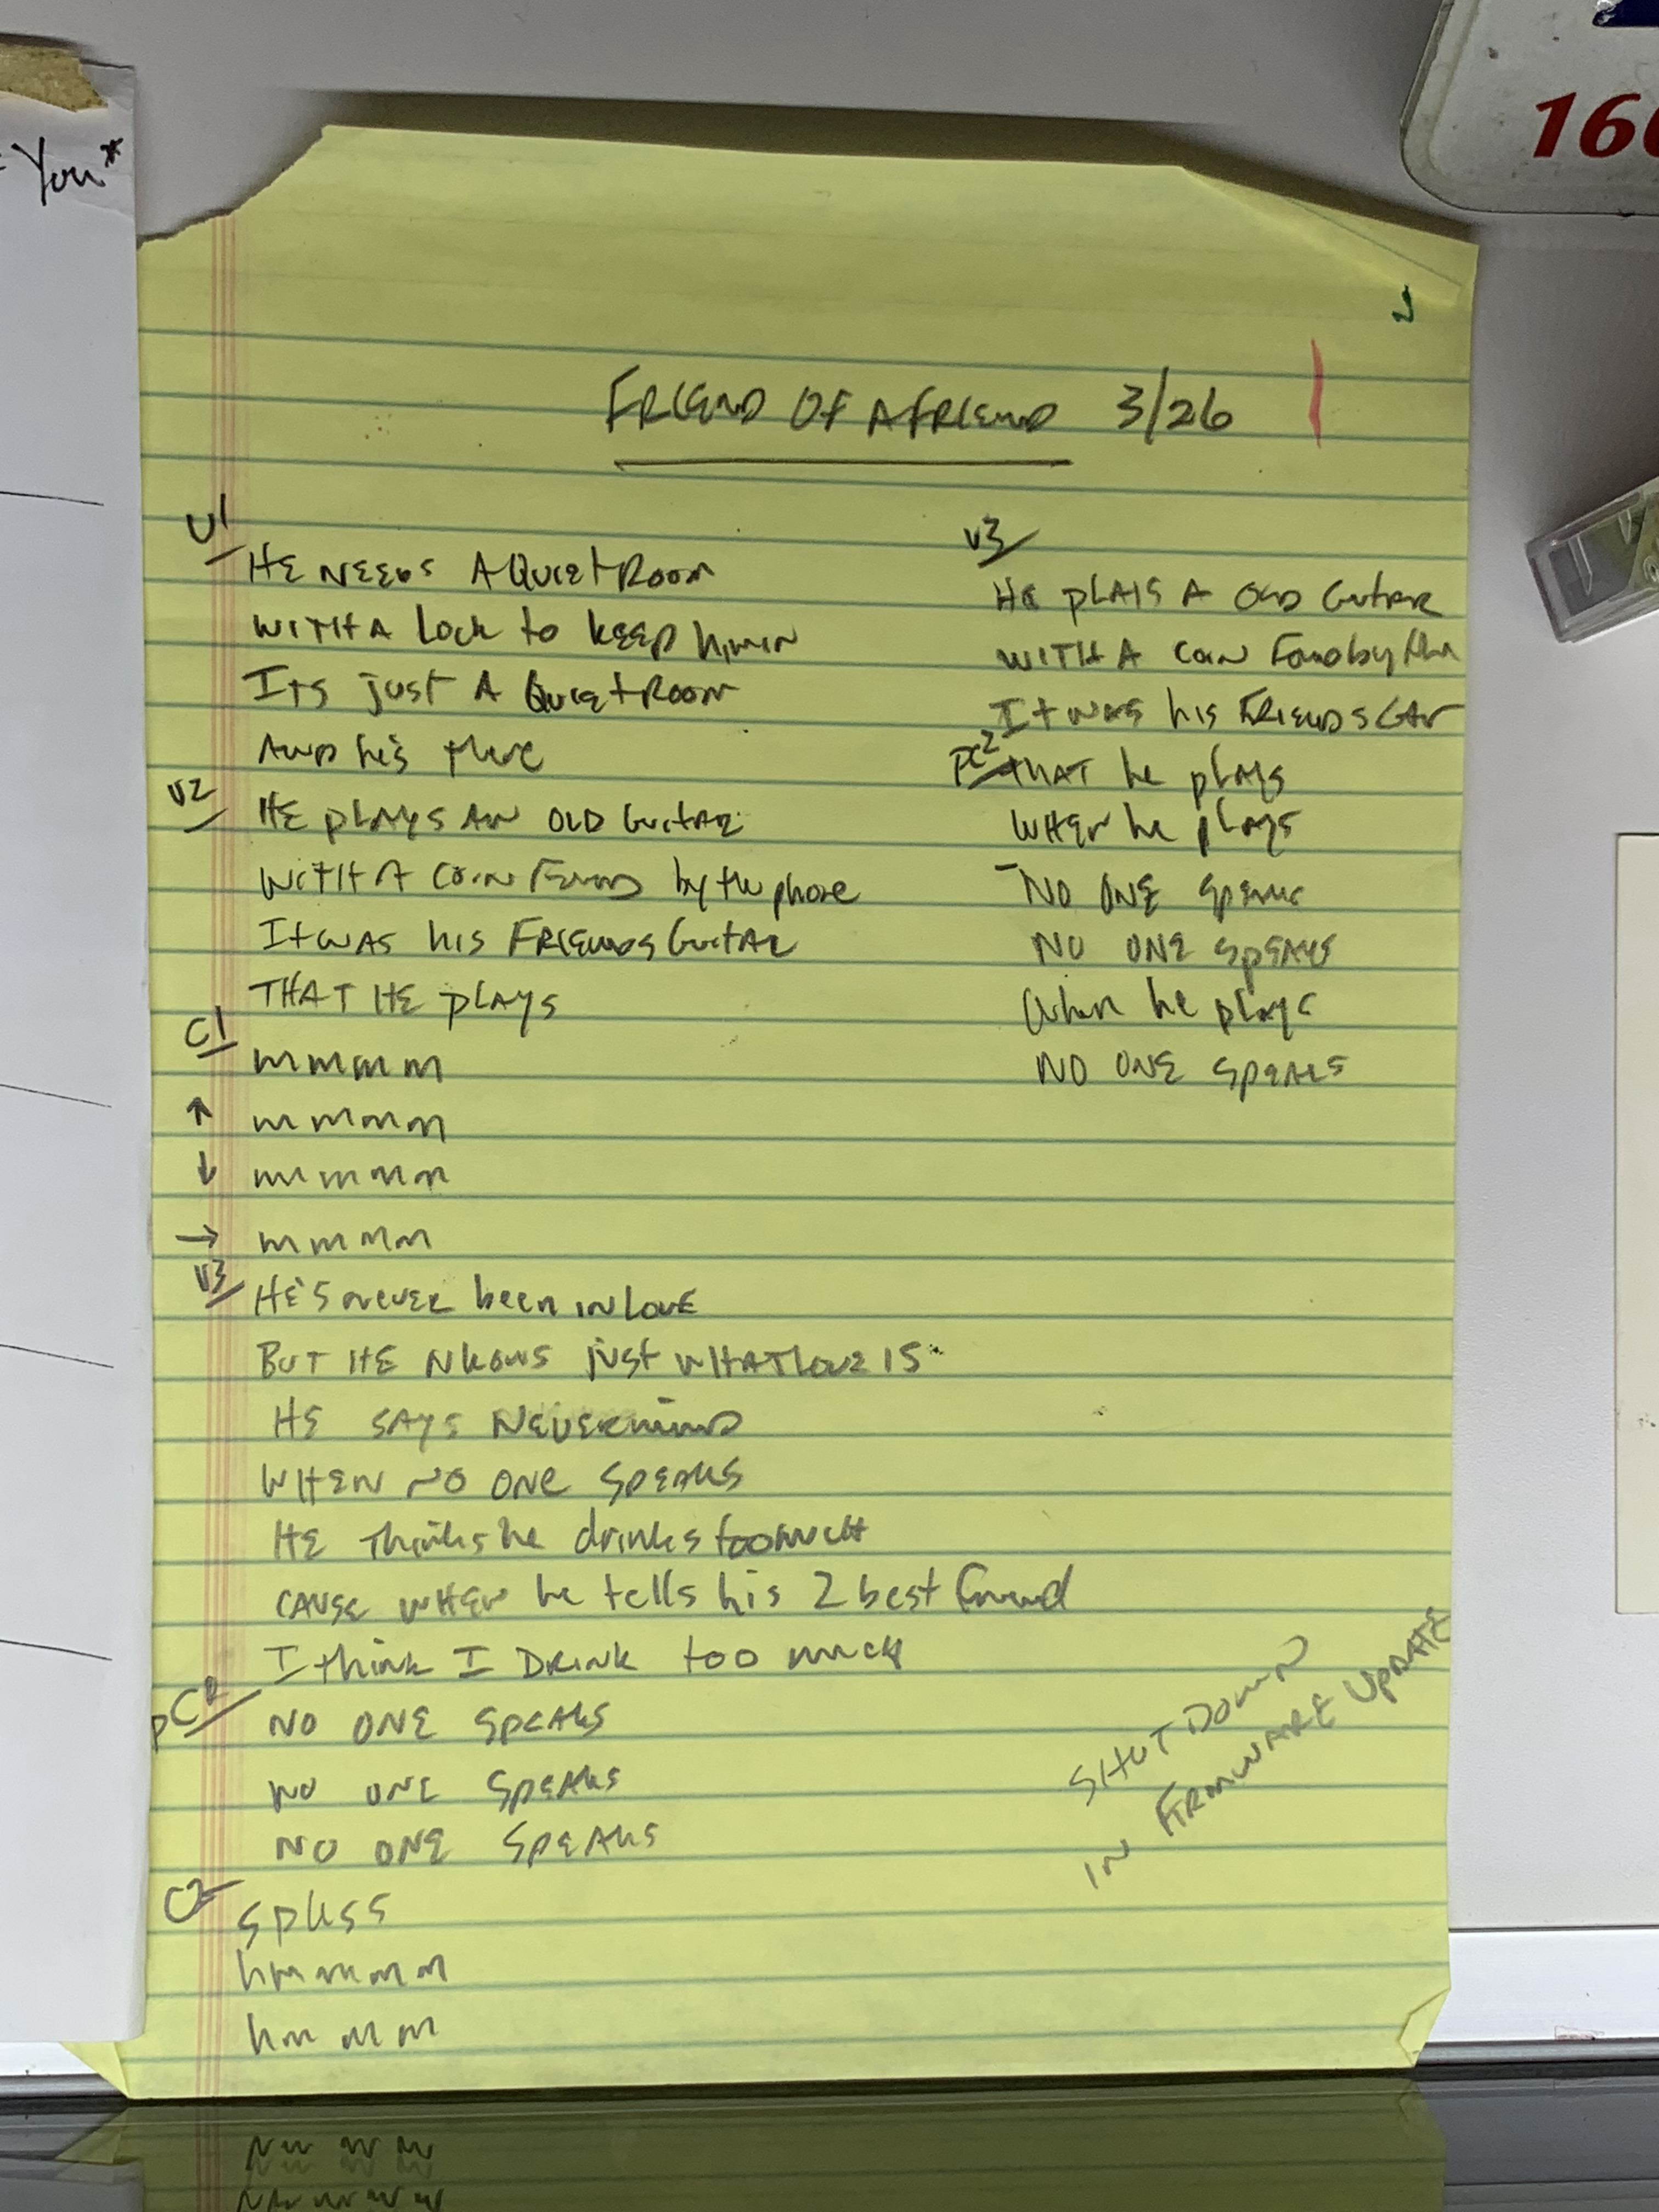 You*
160
FRIEND OF A FRIEND 3/26
V1
HE NEEDS A QUIET ROOM
WITH A LOCK to KEEP him IN
ITS just A QUIET ROOM
AND he's there
V2
HE PLAYS AN OLD GUITAR
WITH A COIN FOUND by the phone
It WAS his FRIENDS GUITAR
THAT HE PLAYS
C1
mmmm
↑ mmmm
↓ mmmm
→ mmmm
V3
HE'S never been IN LOVE
BUT HE NKOWS just WHAT LOVE IS
HE SAYS NEVERMIND
WHEN NO ONE SPEAKS
HE Thinks he drinks too MUCH
CAUSE WHEN he tells his 2 best friend
I think I DRINK too much
PC
NO ONE SPEAKS
NO ONE SPEAKS
NO ONE SPEAKS
C2
SPKSS
hmmmm
hmmm
V3
HE PLAIS A OLD GUTAR
WITH A COIN by
It WAS his FRIENDS
PC2 THAT he PLAYS
WHEN he plays
NO ONE SPEAKS
NO ONE SPEAKS
When he plays
NO ONE SPEAKS
SHUT DOWN
IN FIRMWARE UPDATE